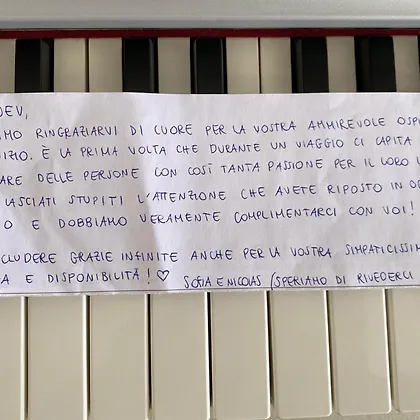 DEV,
MO RINGRAZIARVI DI CUORE PER LA VOSTRA AMMIREVOLE OSP
IZIO. È LA PRIMA VOLTA CHE DURANTE UN VIAGGIO CI CAPITA
ARE DELLE PERSONE CON COSÌ TANTA PASSIONE PER IL LORO
LASCIATI STUPITI L'ATTENZIONE CHE AVETE RIPOSTO IN OG
O E DOBBIAMO VERAMENTE COMPLIMENTARCI CON VOI!
CLUDERE GRAZIE INFINITE ANCHE PER LA VOSTRA SIMPATICISSIM
A E DISPONIBILITÀ! ♡ SOFIA E NICOLAS (SPERIAMO DI RIVEDERCI